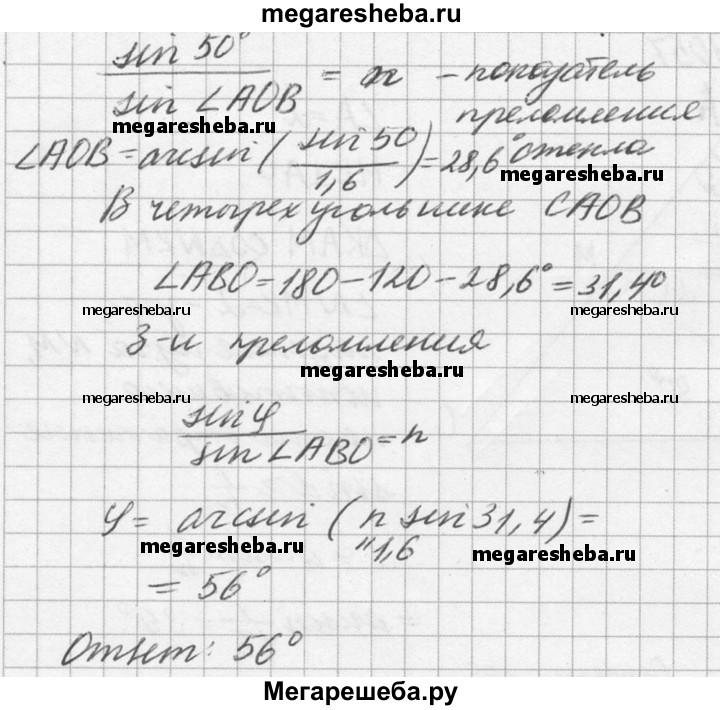 megaresheba.ru
sin 50°
sin ∠AOB = n – показатель
преломления
megaresheba.ru
∠AOB = arcsin ( sin 50 / 1,6 ) = 28,6° стекла
megaresheba.ru
В четырехугольнике CAOB
∠ABO = 180 – 120 – 28,6° = 31,4°
megaresheba.ru megaresheba.ru
З-н преломления
megaresheba.ru
megaresheba.ru megaresheba.ru
sin φ
sin ∠ABO = n
φ = arcsin ( n sin 31,4 ) =
" 1,6
megaresheba.ru megaresheba.ru
= 56°
Ответ: 56°
Мегарешеба.ру